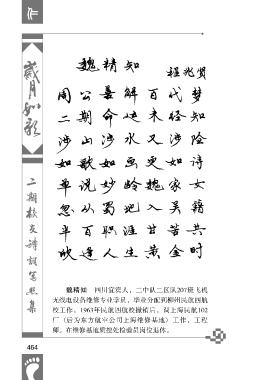 岁月如歌
二期校友诗词笔墨集
魏精知
程兆贤
周公善解百代梦
二期命途未经知
涉山涉水又涉险
如歌如画更如诗
单说妙龄魏家女
忽从蜀地入吴籍
半百职涯甘苦共
欣逢人生黄金时
魏精知 四川宜宾人，二中队二区队207班飞机
无线电设备维修专业学员，毕业分配到柳州民航四航
校工作。1963年民航四航校撤销后，到上海民航102
厂（后为东方航空公司上海维修基地）工作，工程
师。在维修基地质控处检验员岗位退休。
464